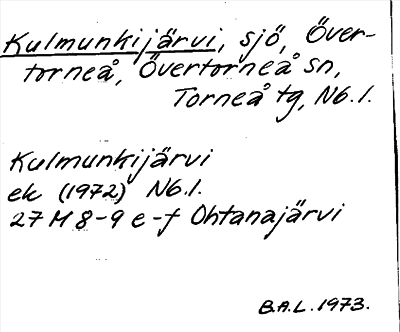 Kulmunkijärvi, sjö, Över-
torneå, Övertorneå sn,
Torneå tg, N6.1.
Kulmunkijärvi
ek (1972) N6.1.
27 M 8-9 e-f Ohtanajärvi
B.A.L. 1973.